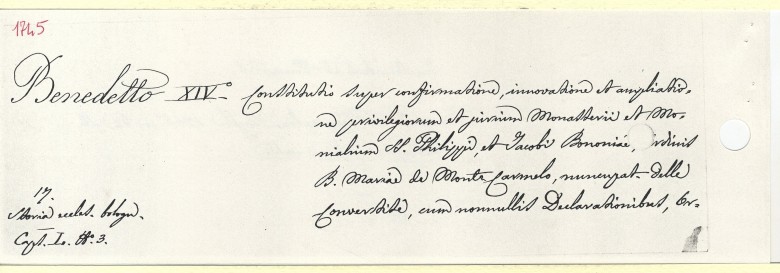 1745
Benedetto XIV.° Constitutio super confirmatione, innovatione et ampliatio=
ne privilegiorum et jurium Monasterii et Mo=
nialium SS. Philippi, et Jacobi Bononiae, Ordinis
B. Mariae de Monte Carmelo, nuncupat. delle
Convertite, cum nonnullis Declarationibus, Or=
17.
Storia eccles. bologn.
Caps. I. N.° 3.